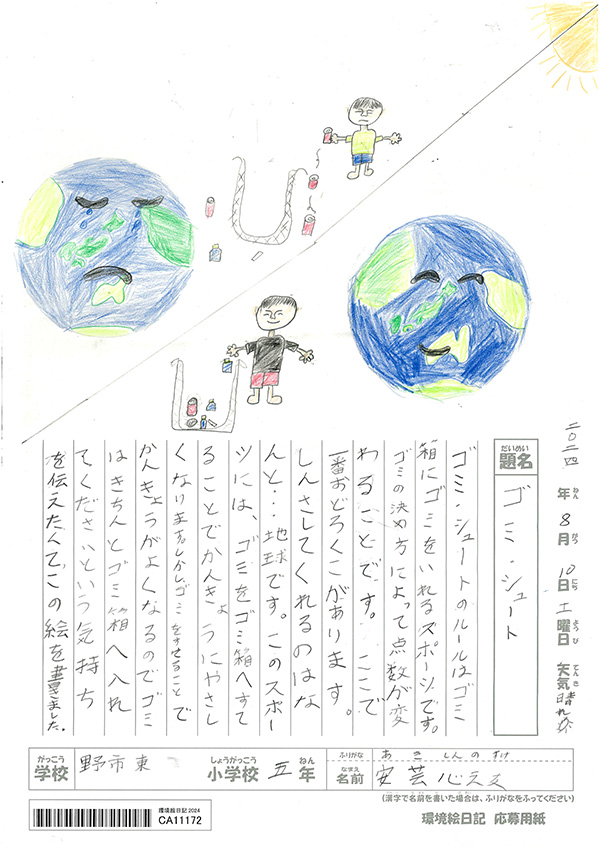 二〇二四年8月10日土曜日 天気晴れ
題名 だいめい
ゴミ・シュート
ゴミ・シュートのルールはゴミ
箱にゴミをいれるスポーツです。
ゴミの決め方によって点数が変
わることです。ここで
一番おどろくこがあります。
しんさしてくれるのはな
んと…地球です。このスポー
ツには、ゴミをゴミ箱へすて
ることでかんきょうにやさし
くなります。しかしゴミをすてることで
かんきょうがよくなるのでゴミ
はきちんとゴミ箱へ入れ
てくださいという気持ち
を伝えたくて、この絵を書きました。
がっこう 学校 野市東 しょうがっこう 小学校 五 ねん 年
ふりがな あき しんのすけ
なまえ 名前 安芸心之
(漢字で名前を書いた場合は、ふりがなをふってください)
環境絵日記 2024
CA11172
環境絵日記 応募用紙